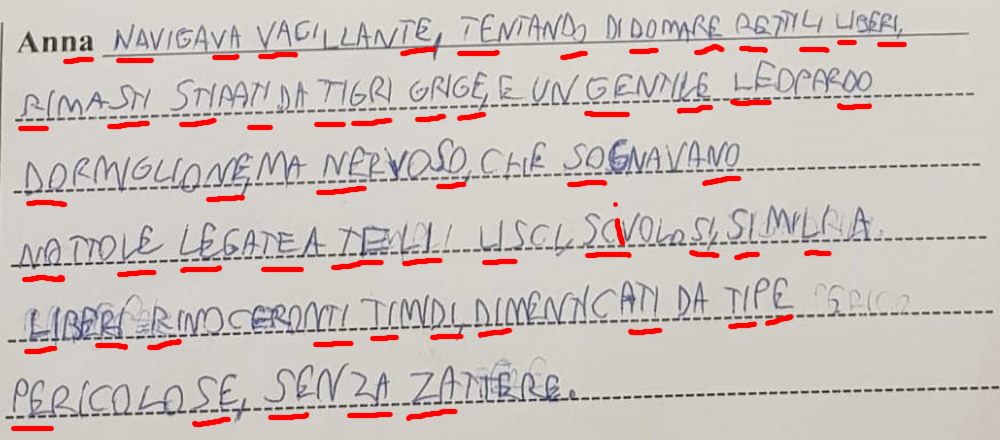 Anna NAVIGAVA VACILLANTE, TENTANDO DI DOMARE RETTILI LIBERI,
RIMASTI STIPATI DA TIGRI GRIGE, E UN GENTILE LEOPARDO
DORMIGLIONE, MA NERVOSO, CHE SOGNAVANO
NATTOLE LEGATE A TELI LISCI, SCIVOLOSI, SIMILI A
LIBERI RINOCERONTI TIMIDI, DIMENTICATI DA TIPE
PERICOLOSE, SENZA ZATTERE.